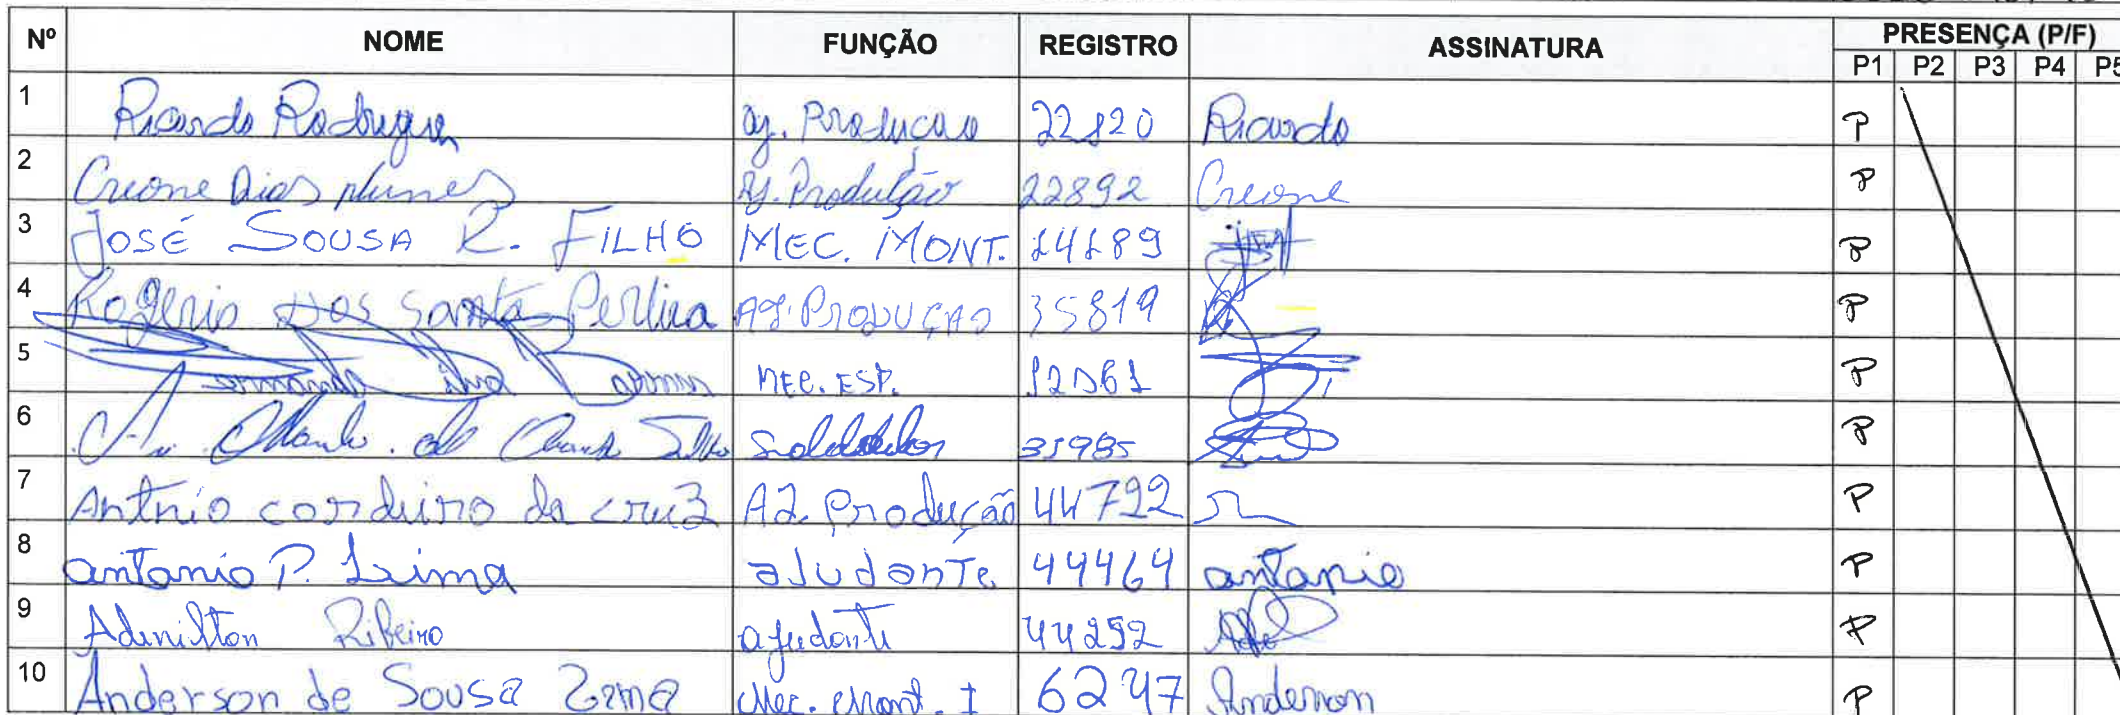 Nº NOME FUNÇÃO REGISTRO ASSINATURA PRESENÇA (P/F)
P1 P2 P3 P4 P5
1 Ricardo Rodrigues aj. Producao 22820 Ricardo P
2 Creone Dias nunes Aj. Produção 22892 Creone P
3 JOSÉ SOUSA R. FILHO MEC. MONT. 14189 P
4 Rogerio dos santos Pereira AJ. PRODUÇAO 35819 P
5 Fernando silva Barros MEC. ESP. 12061 P
6 Soldador 35985 P
7 Antnio corduiro da cruz AJ. Produção 44722 P
8 antonio P. Lima aJudanTe 44464 antonio P
9 Adenilton Ribeiro ajudante 44252 P
10 Anderson de Sousa Lima Mec. Mont. I 6247 Anderson P